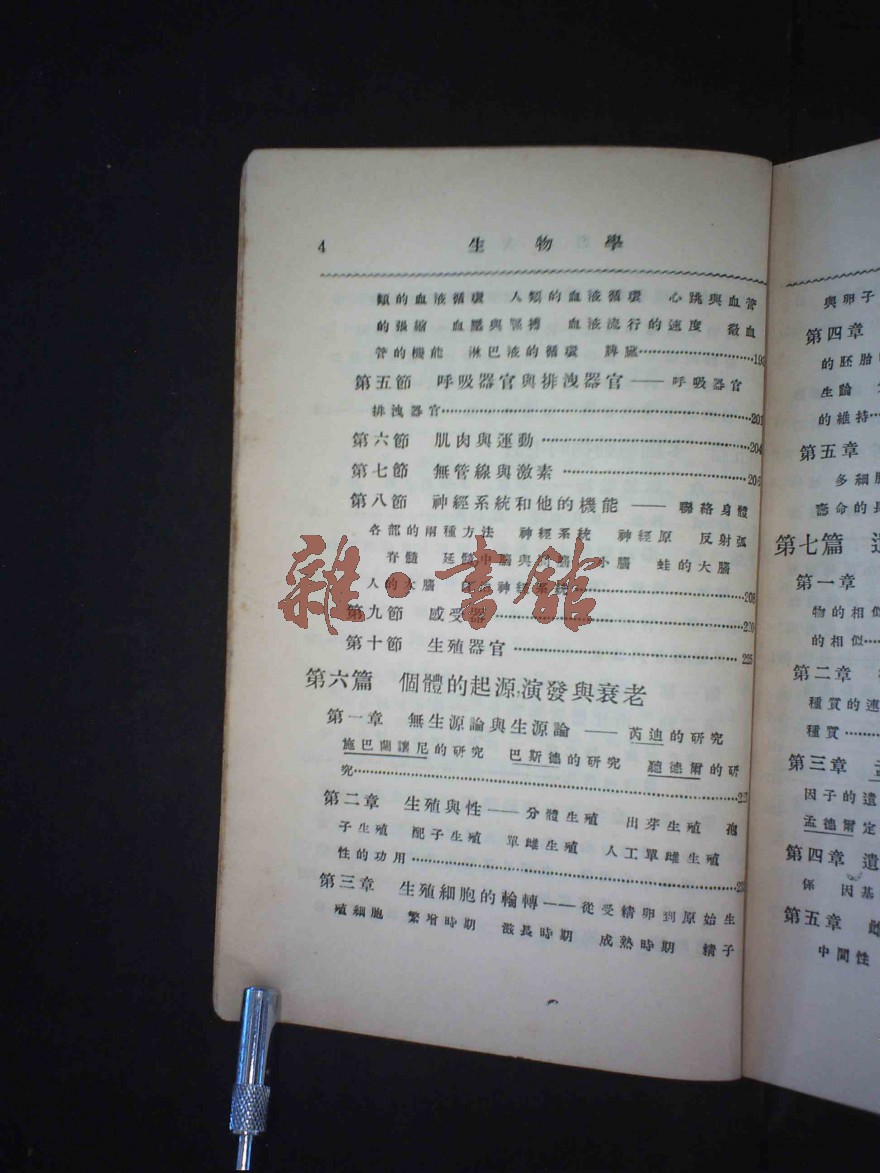 4 生物學
類的血液循環 人類的血液循環 心跳與血管
的張縮 血壓與脈搏 血液流行的速度 微血
管的機能 淋巴液的循環 脾臟……193
第五節 呼吸器官與排洩器官——呼吸器官
排洩器官……201
第六節 肌肉與運動……204
第七節 無管線與激素……206
第八節 神經系統和他的機能——聯絡身體
各部的兩種方法 神經系統 神經原 反射弧
脊髓 延髓 中腦與 小腦 蛙的大腦
人的大腦 神經系統……208
第九節 感受器……220
第十節 生殖器官……225
第六篇 個體的起源,演發與衰老
第一章 無生源論與生源論——芮迪的研究
施巴蘭讓尼的研究 巴斯德的研究 聽德爾的研
究……
第二章 生殖與性——分體生殖 出芽生殖 孢
子生殖 配子生殖 單雌生殖 人工單雌生殖
性的功用……
第三章 生殖細胞的輪轉——從受精卵到原始生
殖細胞 繁增時期 滋長時期 成熟時期 精子
與卵子
第四章
的胚胎
生論
的維持
第五章
多細
壽命的長
第七篇
第一章
物的相似
的相似
第二章
種質的
種質
第三章
因子的遺
孟德爾定
第四章 遺
係 因基
第五章 雌
中間性
雜·書館